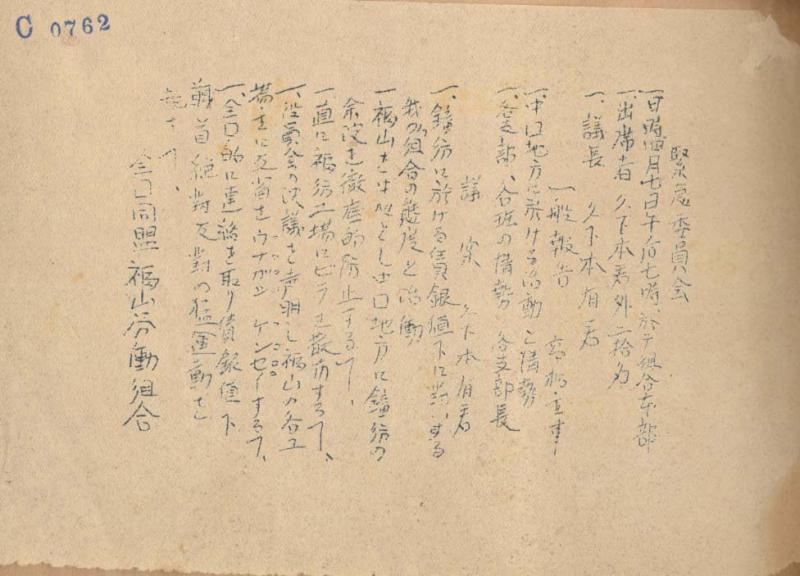 C 0762
緊急委員會
一、日時四月七日午后七時、於テ組合本部
一、出席者 久下本君外二拾名
一、議長 久下本有君
一般報告 高橋主事
一、中口地方に於ける活動と情勢
一、各支部、各班の情勢 各支部長
議案 久下本有君
一、鐘紡に於ける賃銀値下に対する
我の組合の態度と活動
一、福山を中心とし中口地方に鐘紡の
余波を徹底的防止する丁、
一、直に福紡工場にビラを散布する丁、
一、役員会の決議を声明し福山の各工
場主に反省をウナガシケンセイする丁、
一、全口的に連絡を取り賃銀値下
絶対反対の猛運動を
全口同盟福山労働組合